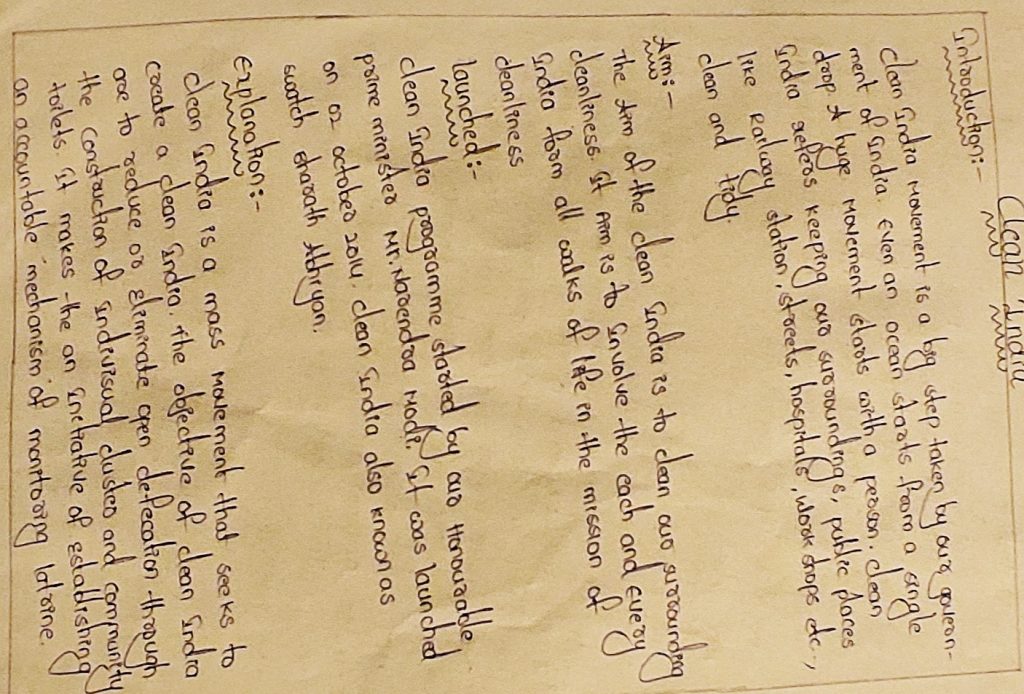 Clean India
Introduction:-
Clean India Movement is a big step taken by our govern-
ment of India. Even an ocean starts from a single
drop A huge Movement starts with a person. Clean
India refers keeping our surroundings, public places
like Railway station, streets, hospitals, work shops etc..,
clean and tidy.
Aim:-
The Aim of the clean India is to clean our surrounding
cleanliness. It Aim is to Involve the each and Every
India form all walks of life in the mission of
cleanliness
launched:-
clean India programme started by our Honourable
prime minister Mr. Narendra Modi. It was launched
on 02 october 2014. clean India also known as
swatch Bharath Abhiyan.
Explanation:-
Clean India is a mass movement that seeks to
create a clean India. the objective of clean India
are to reduce or Eliminate open defecation through
the Construction of Indivisual cluster and community
toilets. It makes the an Initiative of Establishing
an accountable mechanism of monitoring latrine.